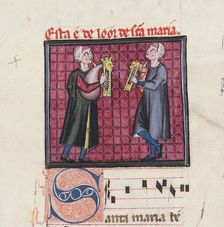 Esta é de loor de scã maria.
Santa maria be